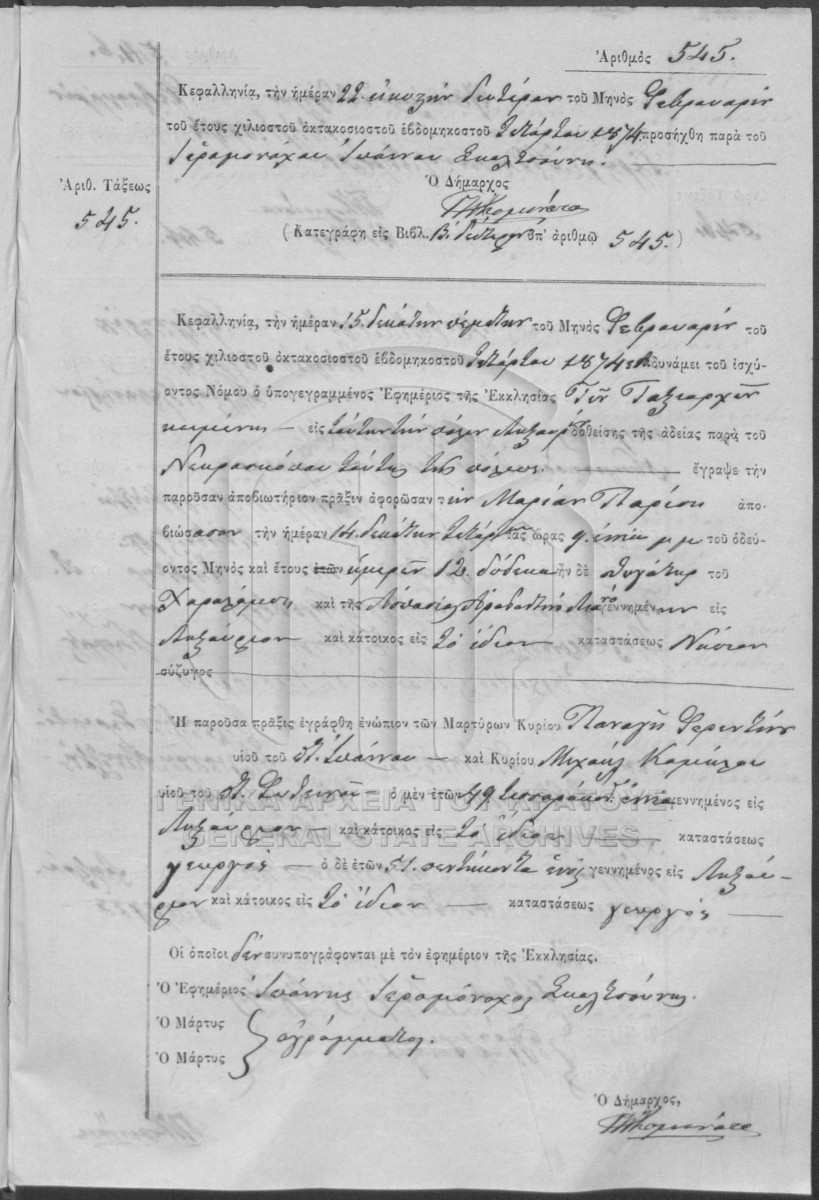 Ἀριθμὸς 545.
Κεφαλληνίᾳ, τὴν ἡμέραν 22 εἰκοστὴν δευτέραν τοῦ Μηνὸς Φεβρουαρίου
τοῦ ἔτους χιλιοστοῦ ὀκτακοσιοστοῦ ἑβδομηκοστοῦ τετάρτου 1874 προσήχθη παρὰ τοῦ
Ἱερομονάχου Ἰωάννου Σκαλτσούνη.
Ἀριθ. Τάξεως
545.
Ὁ Δήμαρχος
(Κατεγράφη εἰς Βιβλ. Β. δεύτερον ὑπ' ἀριθμῷ 545.)
Κεφαλληνίᾳ, τὴν ἡμέραν 15 δεκάτην πέμπτην τοῦ Μηνὸς Φεβρουαρίου τοῦ
ἔτους χιλιοστοῦ ὀκτακοσιοστοῦ ἑβδομηκοστοῦ τετάρτου 1874 δυνάμει τοῦ ἰσχύ-
οντος Νόμου ὁ ὑπογεγραμμένος Ἐφημέριος τῆς Ἐκκλησίας Τῶν Ταξιαρχῶν
κειμένης εἰς ταύτην τὴν πόλιν Ληξουρ δοθείσης τῆς ἀδείας παρὰ τοῦ
Νεκροσκόπου ταύτης τῆς πόλεως. ἔγραψε τὴν
παροῦσαν ἀποβιωτήριον πρᾶξιν ἀφορῶσαν τὴν Μαρίαν Παρίση ἀπο-
βιώσασαν τὴν ἡμέραν 14 δεκάτην τετάρτ τὰς ὥρας 9 ἐννέα μ μ τοῦ ὁδεύ-
οντος Μηνὸς καὶ ἔτους ἐτῶν ἡμερῶν 12 δώδεκα ἦν δὲ θυγάτηρ τοῦ
Χαραλάμπη καὶ τῆς Ἀσπασίας γεννημένην εἰς
Ληξούριον καὶ κάτοικος εἰς τὸ ἴδιον καταστάσεως Νήπιον
σύζυγος
Ἡ παροῦσα πρᾶξις ἐγράφθη ἐνώπιον τῶν Μαρτύρων Κυρίου Παναγῆ Φερεντίνου
υἱοῦ τοῦ Ἰωάννου καὶ Κυρίου Μιχαὴλ
υἱοῦ τοῦ ὁ μὲν ἐτῶν 49 τεσσαράκοντ ἐννέα γεννημένος εἰς
Ληξούριον καὶ κάτοικος εἰς τὸ ἴδιον καταστάσεως
γεωργός ὁ δὲ ἐτῶν 51 πεντήκοντα ἑνός γεννημένος εἰς Ληξού-
ριον καὶ κάτοικος εἰς τὸ ἴδιον καταστάσεως γεωργός
Οἱ ὁποῖοι δὲν συνυπογράφονται μὲ τὸν ἐφημέριον τῆς Ἐκκλησίας.
Ὁ Ἐφημέριος Ἰωάννης Ἱερομόναχος Σκαλτσούνης.
Ὁ Μάρτυς
ἀγράμματοι.
Ὁ Μάρτυς
Ὁ Δήμαρχος,
ΓΕΝΙΚΑ ΑΡΧΕΙΑ ΤΟΥ ΚΡΑΤΟΥΣ
GENERAL STATE ARCHIVES